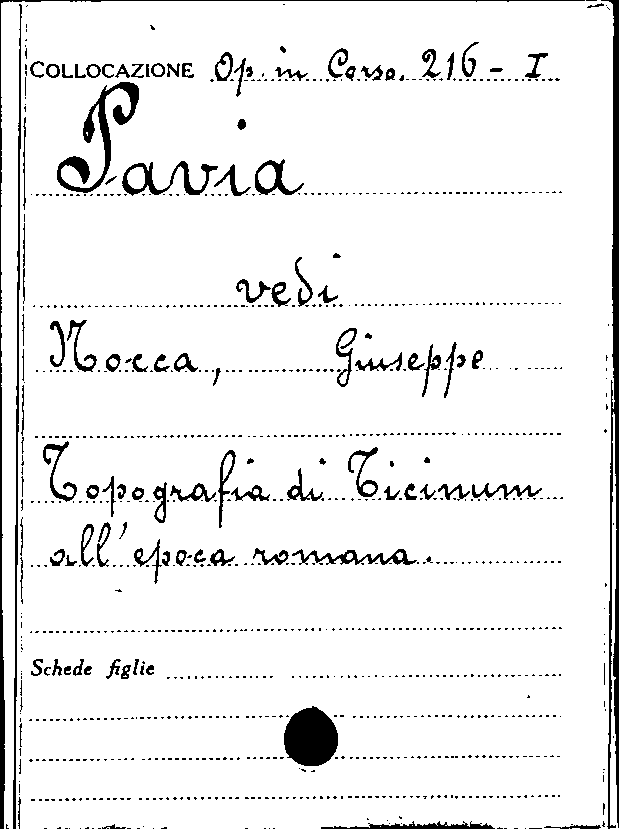 COLLOCAZIONE Op. in Corso. 216 - I
Pavia
vedi
Nocca, Giuseppe
Topografia di Ticinum
all'epoca romana.
Schede figlie